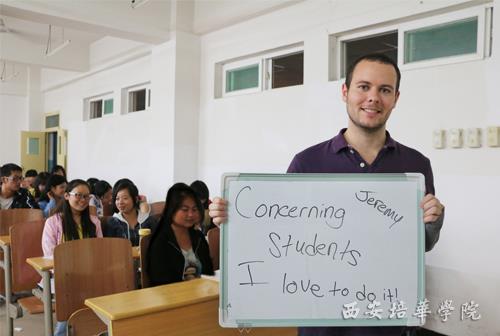 Concerning Jeremy
Students
I love to do it!
西安培华学院